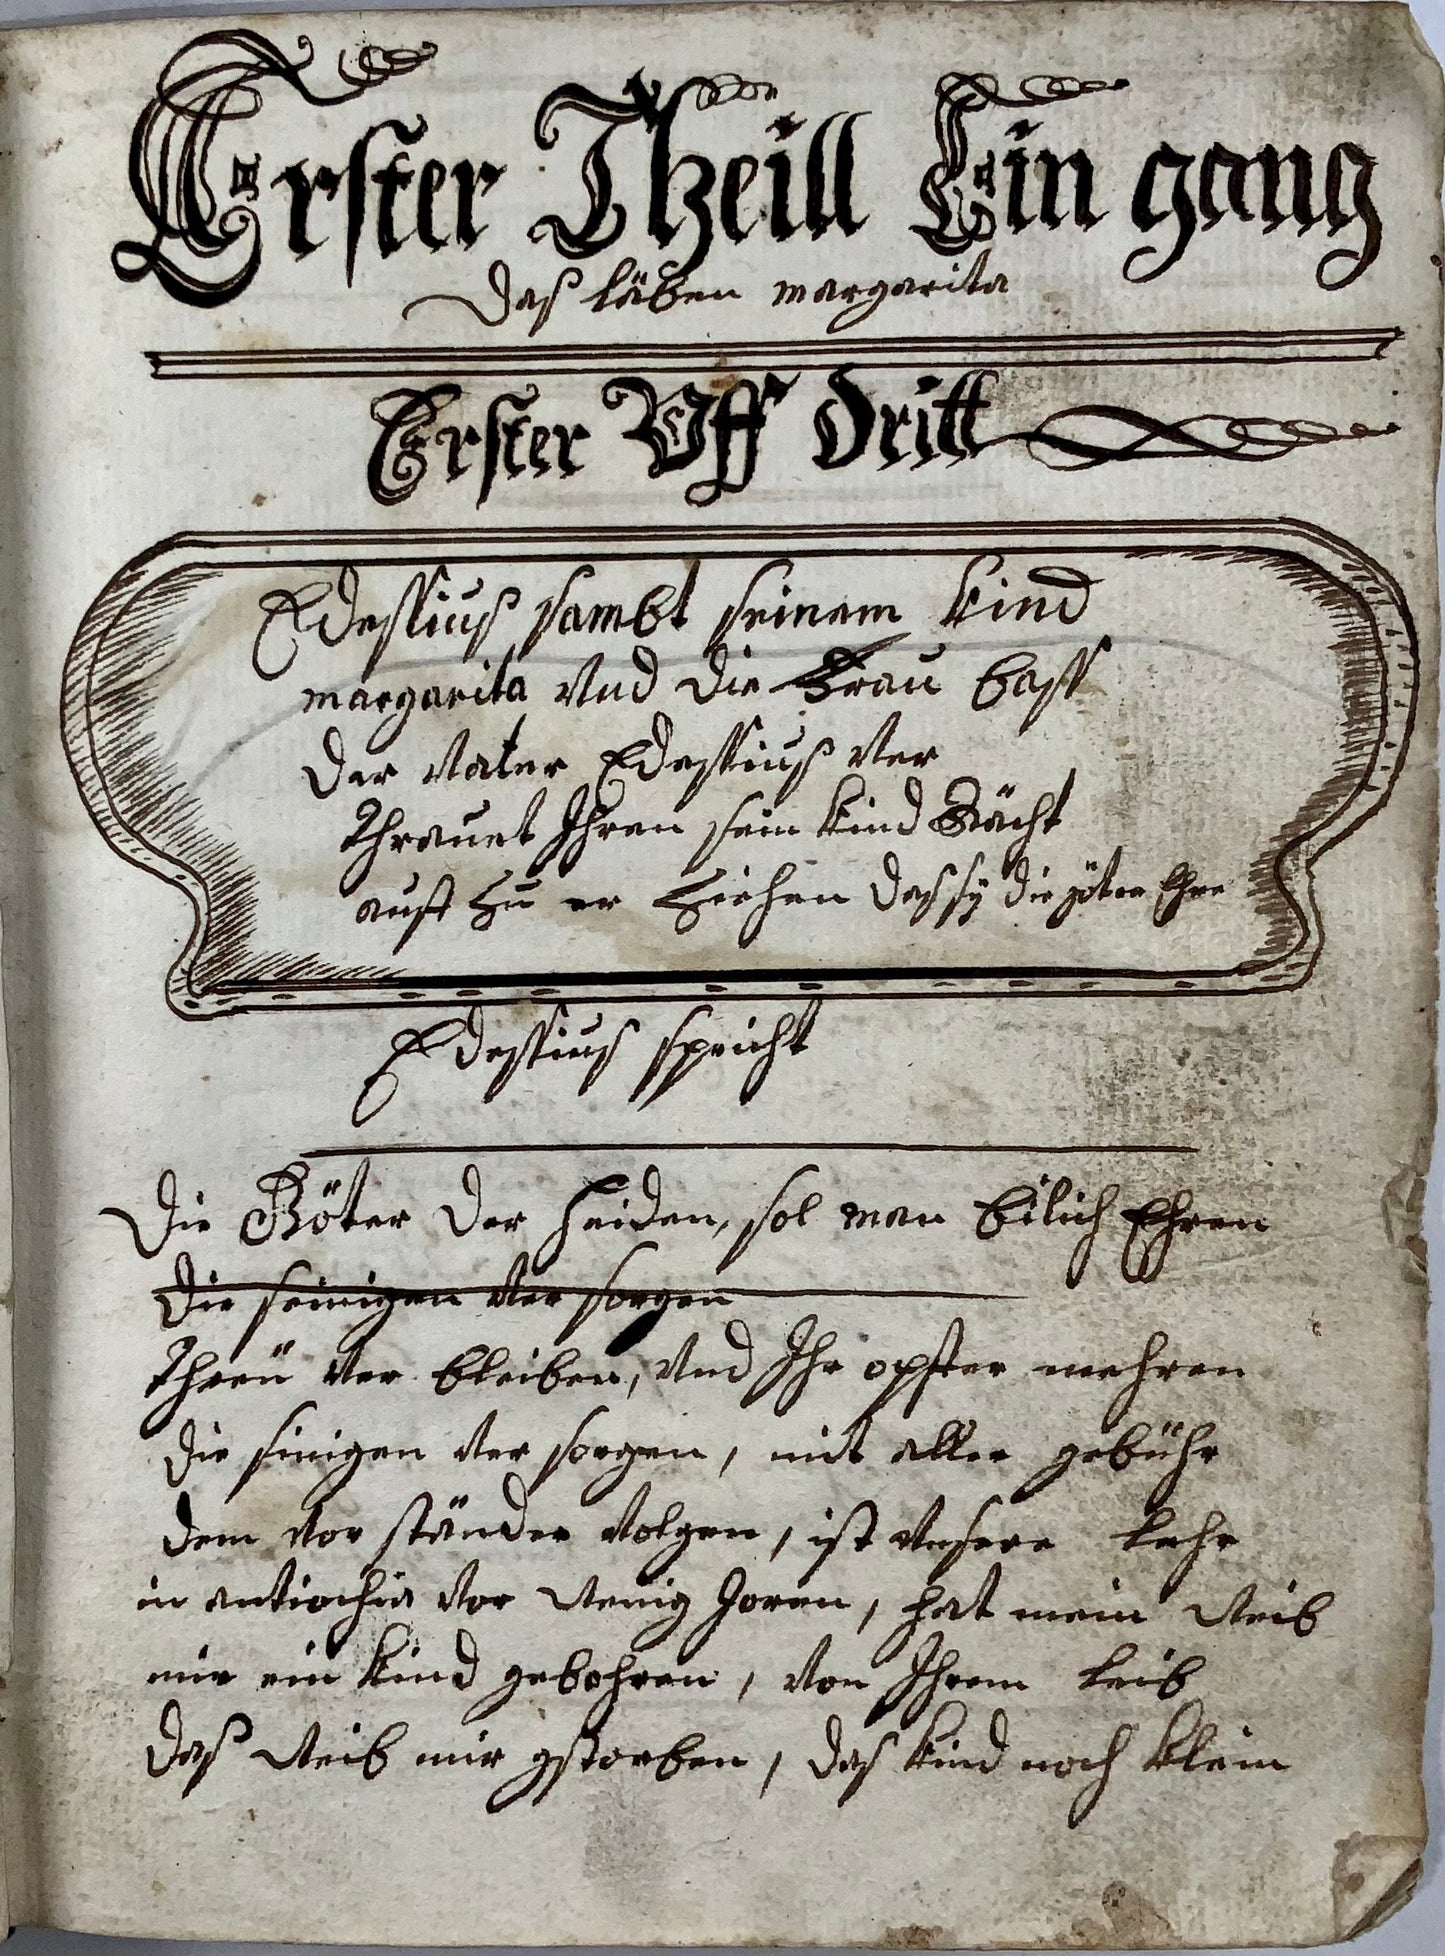 Erster Theill Ein gang
Das läben margarita
Erster Uff dritt
Edessius sambt seinem kind
margarita Vnd die Frau bass
Der Vater Edessius Ver
Thrauet Ihren sein kind Rächt
auff Zu er Ziehen das sÿ die göter Ehre
Edessius spricht
Die Göter der heiden, sol man bilich Ehren
die seinigen Ver sorgen
Threü Ver bleiben, Vnd Ihr opffer mehren
die sinigen Ver sorgen, mit aller gebühr
dem Vor ständer Volgen, ist Vnsere Lehr
in antiochia Vor Wenig Joren, hat mein Weib
mir ein kind gebohren, Von Ihrem Leib
das Weib mir gstorben, das kind noch klein